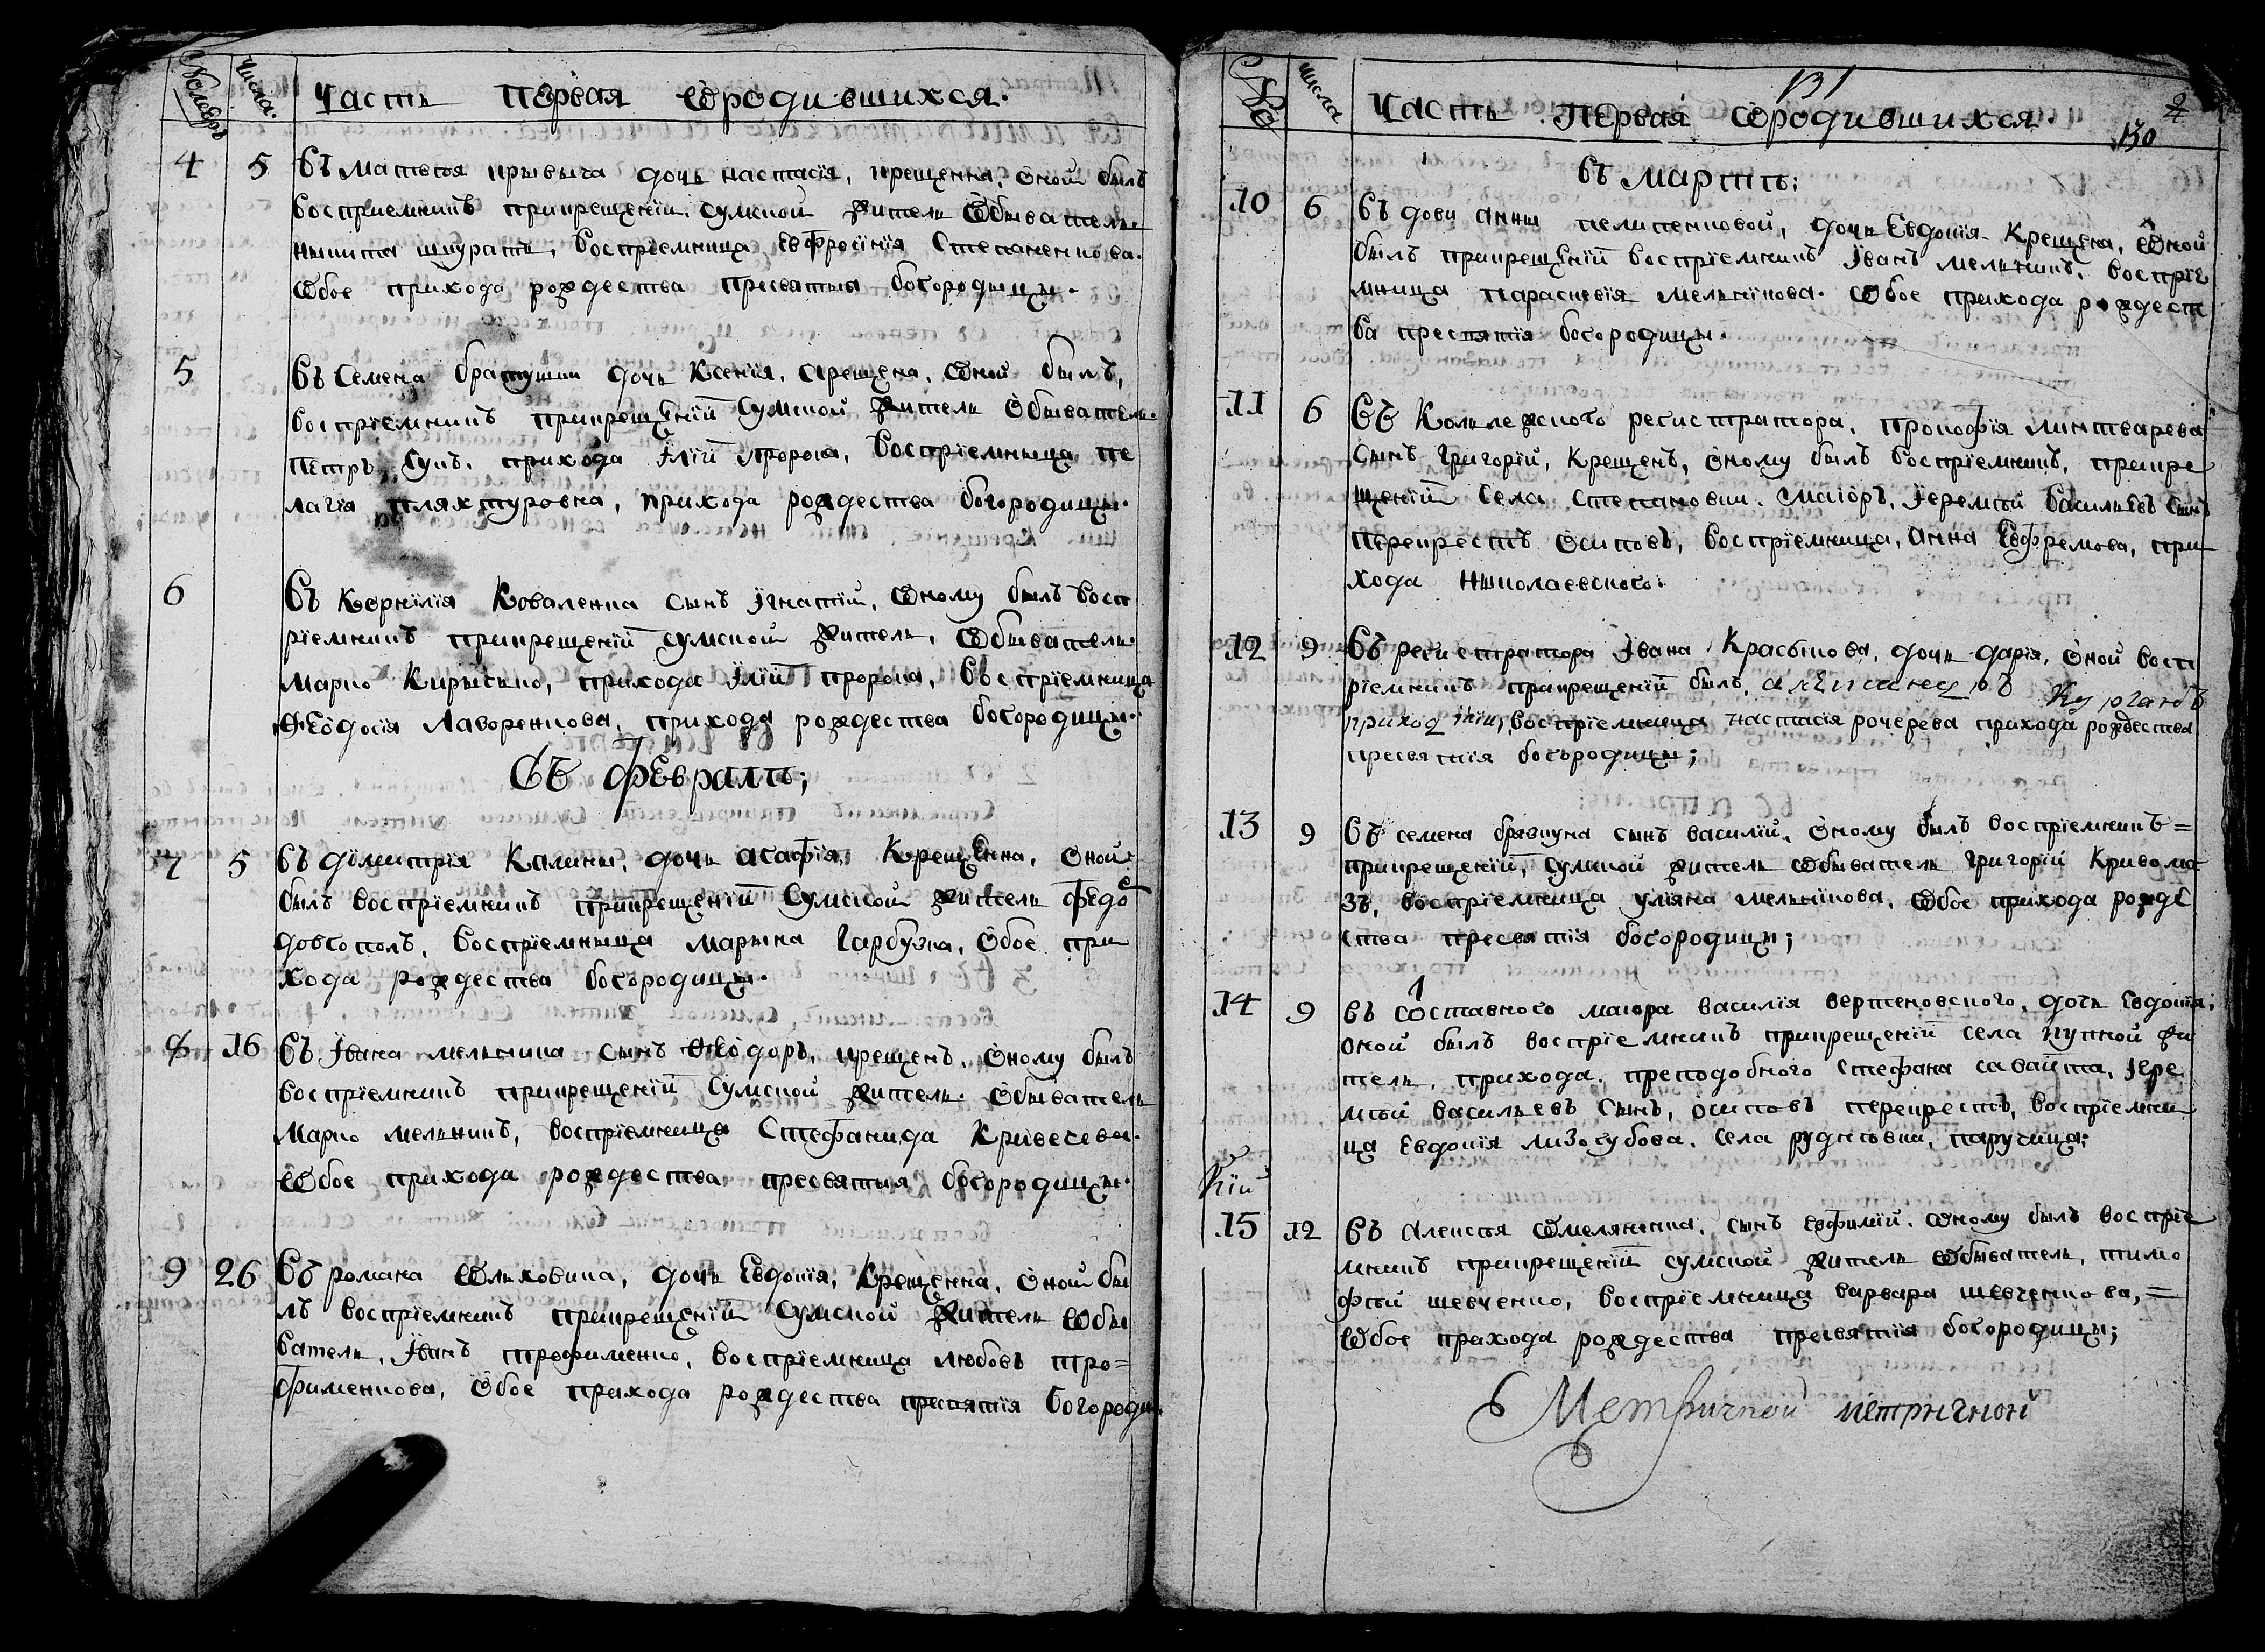 Номеръ Числа. Часть Первая ѿродившихся.
4 5 въ матвѣя крывыча дочь настасія, крещенна, оной былъ
восприемникъ прикрещенїи сумской житель ѻбыватель
никита шкуратъ, воспрїемница евфросїнїя степаненкова.
ѻбое прихода рождества пресвятыя богородицы.
5 въ Семена братушки дочь Ксенїя, крещена, ѻной былъ,
воспрїемникъ прикрещенїи Сумской житель ѻбыватель
петръ Сукъ, прихода Ілїи пророка, воспрїемныца пе
лагїя пляхтуровна, прихода рождества богородицы.
6 въ Корнїлїя Коваленка сынъ Їгнатїи, ѻному былъ восп
рїемникъ прикрещенїи сумской житель, ѻбыватель
Марко Кирысько, прихода Ілїи пророка, въсспрїемница
Ѳеодосїя Лавренкова, прихода рождества богородицы.
Въ февралѣ;
7 5 въ дїмитрїя Калины, дочь агафїя, Крещенна, оной
былъ воспрїемникъ прикрещенїи Сумской житель федо
довгополъ, воспрїемныца марына Гарбузка, ѻбое при
хода рождества богородицы.
8 16 въ Івана мельника сынъ Ѳеодоръ, крещенъ, оному былъ
воспрїемникъ прикрещенїи Сумской житель ѻбыватель
Марко мельникъ, воспрїемница Стефанида Кривесева.
ѻбое прихода рождества пресвятыя богородицы.
9 26 въ романа ѻльховика, дочь Евдокїя, Крещенна, оной бы
лъ воспрїемникъ прикрещенїи Сумской житель ѻбы
ватель, Іванъ трофименко, воспрїемница любовъ тро=
фименкова, ѻбое прихода рождества пресвятїя богороди
№ числа Часть Первая ѿродившихся.
131
2
130
въ мартѣ;
10 6 въ довы анны пелипенковой, дочь Евдокїя Крещена, ѻной
былъ прикрещенїи воспрїемникъ Іванъ мельникъ, воспрїе
мница параскевїя мельнїкова. ѻбое прихода рождест
ва пресвятїя богородицы.
11 6 въ Коллежского регистратора, прокофїя линтварева
Сынъ григорїи, Крещенъ, оному былъ воспрїемникъ, прикре
щенїи Села степановки, маїоръ, Іеремѣй васильевъ сынъ
перекрестъ осиповъ, воспрїемница, анна Евфремова, при
хода николаевского.
12 9 въ регистратора Івана Красьнова, дочь дарїя, оной восп
рїемникъ прикрещенїи былъ, александръ Кургановъ
приход илїи, воспрїемница настасїя рочерева прихода рождества
пресвятїя богородицы;
13 9 въ семена брязкуна сынъ василїи, оному былъ воспрїемникъ=
прикрещенїи, сумской житель ѻбыватель григорїи Кривома
зъ, воспрїемница уляна мельнїкова, ѻбое прихода рожде
ства пресвятїя богородицы;
14 9 въ ѻтставного маїора василїя вертеновского, дочь евдокїя,
оной былъ воспрїемникъ прикрещенїи села луткой жи
тель, прихода преподобного стефана саваита, Іере
мѣй васильевъ сынъ, осиповъ перекрестъ, воспрїемни
ца евдокїя лизогубова, села рудневка, паручица;
15 12 въ алексѣя ѻмеляненка, сынъ евфимїи, ѻному былъ воспрїе
мникъ прикрещенїи сумской житель ѻбыватель, тимо
фѣй шевченко, воспрїемница варвара шевченкова,=
ѻбое прихода рождества пресвятїя богородицы;
Метричной метричной